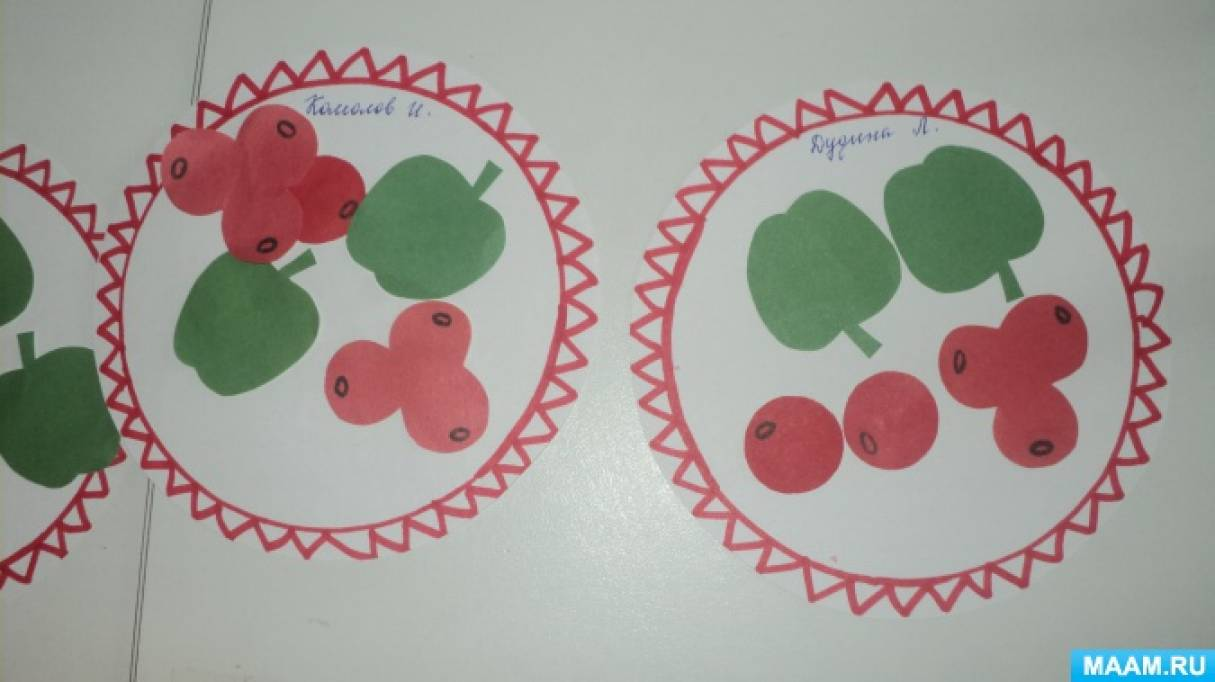 Комолов И.
Дудина Л.
MAAM.RU